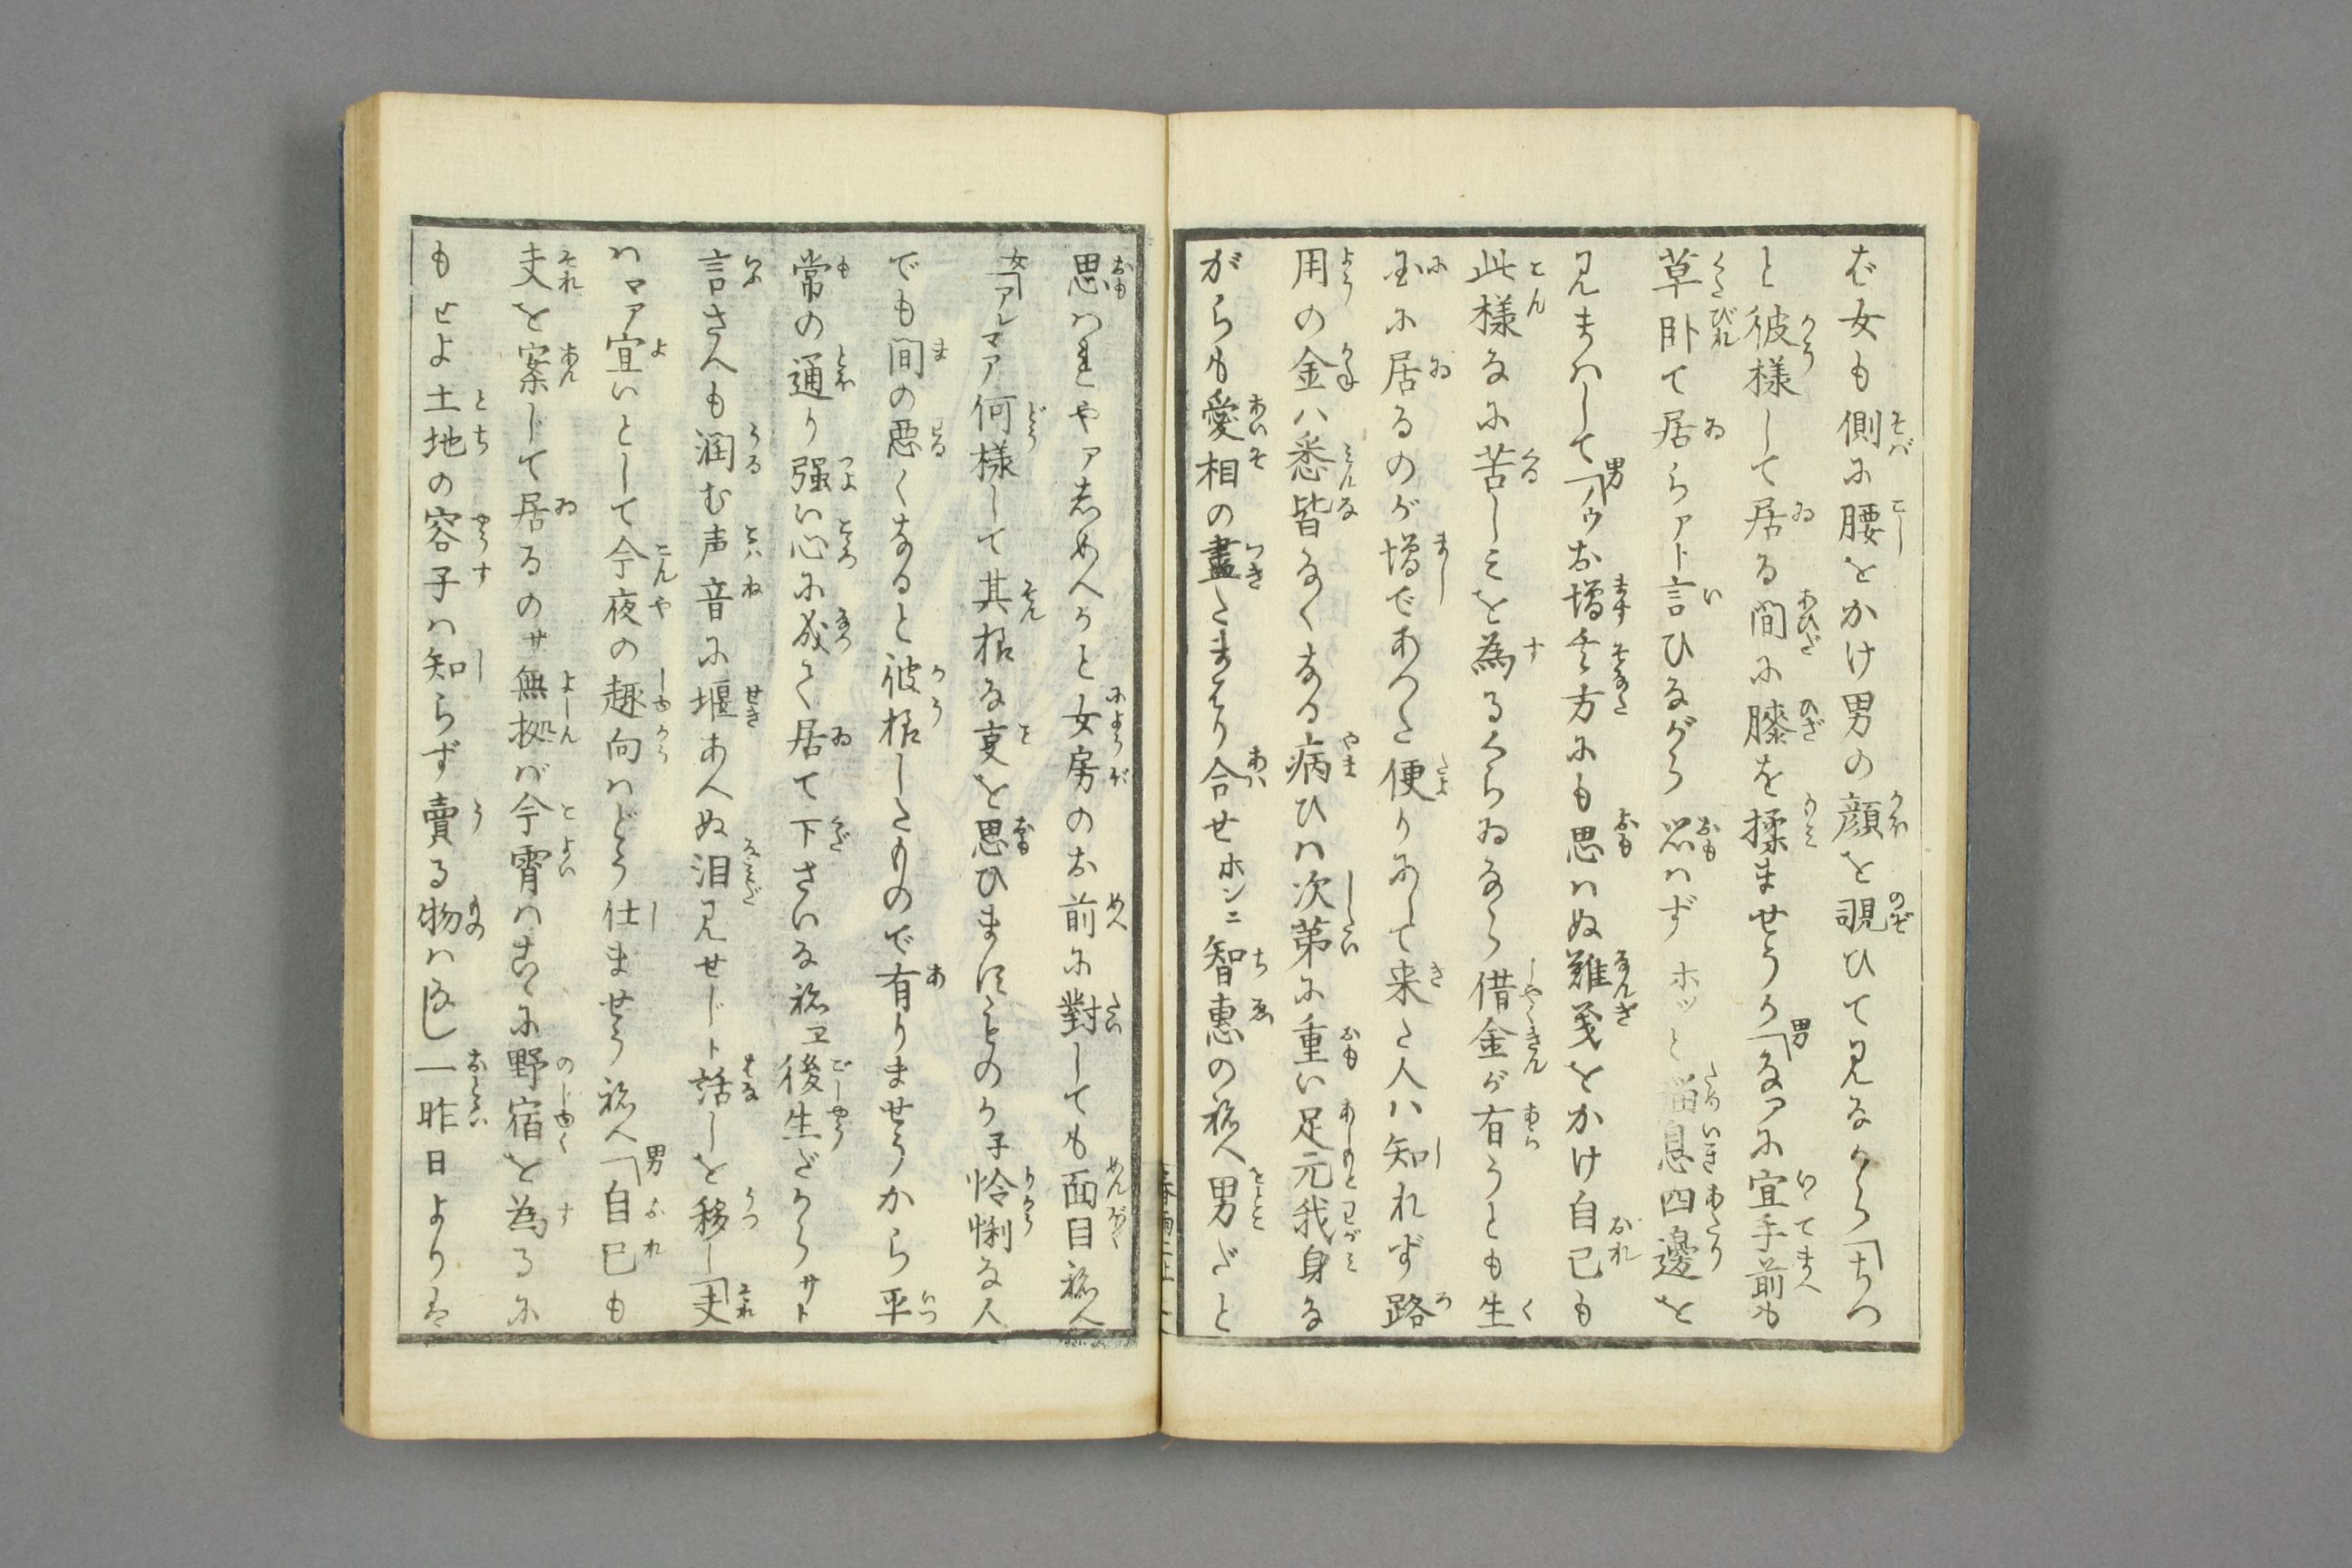 ば女も側に腰をかけ男の顔を覗ひて見ながら「ちつ
と彼様して居る間に膝を揉ませうか男「なアに宜手前も
草臥て居らアト言ひながら思はずホッと溜息四邊を
見まはして男「ノウお増其方にも思はぬ難義をかけ自己も
此様なに苦しみを為るくらゐなら借金が有うとも生
国に居るのが増であつた便りにして来た人ハ知れず路
用の金ハ悉皆なくなる病ひハ次第に重い足元我身な
がらも愛相の盡たまはり合せホンニ智恵の祢へ男だと
思ハれやアしめへかと女房のお前に對しても面目祢へ
女「アレマア何様して其様な事を思ひますものか子怜悧な人
でも間の悪くなると彼様したもので有りませうから平
常の通り強い心に成て居て下さいな祢ヱ後生だからサト
言さへも潤む声音に堰あへぬ泪見せじト話しを移し「夫
ハマア宜いとして今夜の趣向ハどう仕ませう祢へ男「自己も
夫を案じて居るのサ無拠が今宵ハ爰に野宿を為るに
もせよ土地の容子ハ知らず賣る物ハなし一昨日よりは